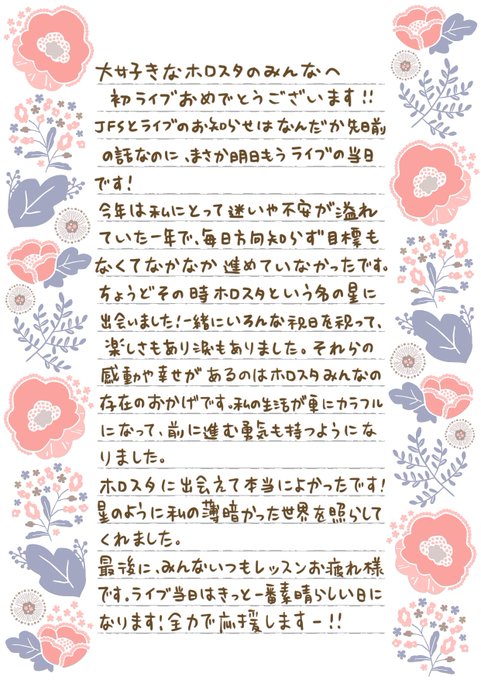 大好きなホロスタのみんなへ
初ライブおめでとうございます!!
JFSとライブのお知らせはなんだか先日前
の話なのに、まさか明日もうライブの当日
です!
今年は私にとって迷いや不安が溢れ
ていた一年で、毎日方向知らず目標も
なくてなかなか進めていなかったです。
ちょうどその時ホロスタという名の星に
出会いました!一緒にいろんな祝日を祝って、
楽しさもあり涙もありました。それらの
感動や幸せがあるのはホロスタみんなの
存在のおかげです。私の生活が更にカラフル
になって、前に進む勇気も持つようにな
りました。
ホロスタに出会えて本当によかったです!
星のように私の薄暗かった世界を照らして
くれました。
最後に、みんないつもレッスンお疲れ様
です。ライブ当日はきっと一番素晴らしい日に
なります!全力で応援しますー!!